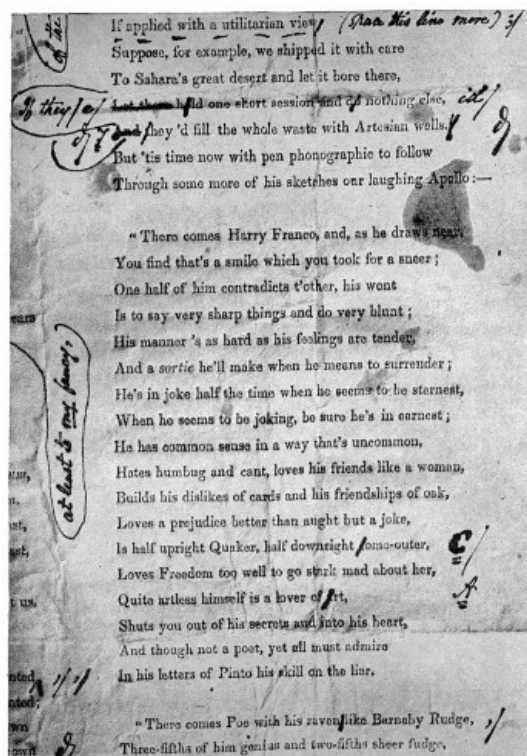 of the
If applied with a utilitarian view; (space this line more) 3/
Suppose, for example, we shipped it with care
To Sahara's great desert and let it bore there,
If they/
Let them hold one short session and do nothing else,
And they'd fill the whole waste with Artesian wells.
But 'tis time now with pen phonographic to follow
Through some more of his sketches our laughing Apollo:—
"There comes Harry Franco, and, as he draws near,
You find that's a smile which you took for a sneer;
One half of him contradicts t'other, his wont
Is to say very sharp things and do very blunt;
His manner 's as hard as his feelings are tender,
And a sortie he'll make when he means to surrender;
He's in joke half the time when he seems to be sternest,
When he seems to be joking, be sure he's in earnest;
He has common sense in a way that's uncommon,
Hates humbug and cant, loves his friends like a woman,
Builds his dislikes of cards and his friendships of oak,
Loves a prejudice better than aught but a joke,
Is half upright Quaker, half downright come-outer, C/
Loves Freedom too well to go stark mad about her,
Quite artless himself is a lover of Art, A
Shuts you out of his secrets and into his heart,
And though not a poet, yet all must admire
In his letters of Pinto his skill on the liar.
"There comes Poe with his raven like Barnaby Rudge, ,/
Three-fifths of him genius and two-fifths sheer fudge,
at least to my fancy,
ears
t us,
nted
nted;
wn
own